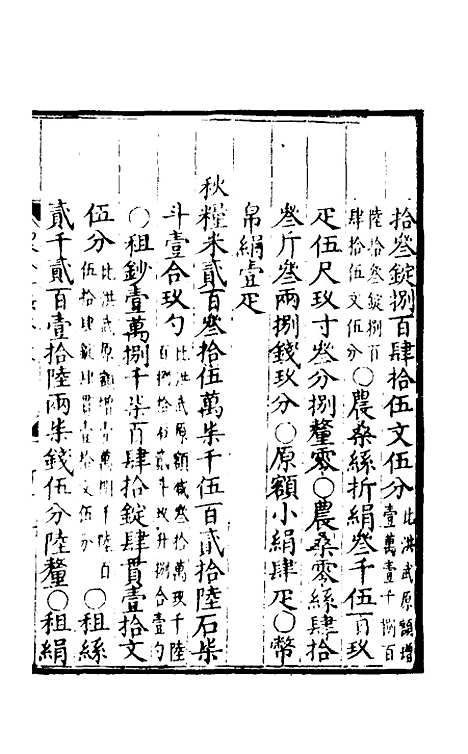 拾叁錠捌百肆拾伍文伍分比洪武原額增壹萬壹千捌百
陸拾叁錠捌百肆拾伍文伍分〇農桑絲折絹叁千伍百玖
疋伍尺玖寸叁分捌釐零〇農桑零絲肆拾
叁斤叁兩捌錢玖分〇原額小絹肆疋〇幣
帛絹壹疋
秋糧米貳百叁拾伍萬柒千伍百貳拾陸石柒
斗壹合玖勺比洪武原額減叁拾萬玖千陸百捌拾伍石貳斗玖升捌合壹勺
〇租鈔壹萬捌千柒百肆拾錠肆貫壹拾文
伍分比洪武原額增壹萬捌千陸百伍拾肆錠肆貫壹拾文伍分〇租絲
貳千貳百壹拾陸兩柒錢伍分陸釐〇租絹